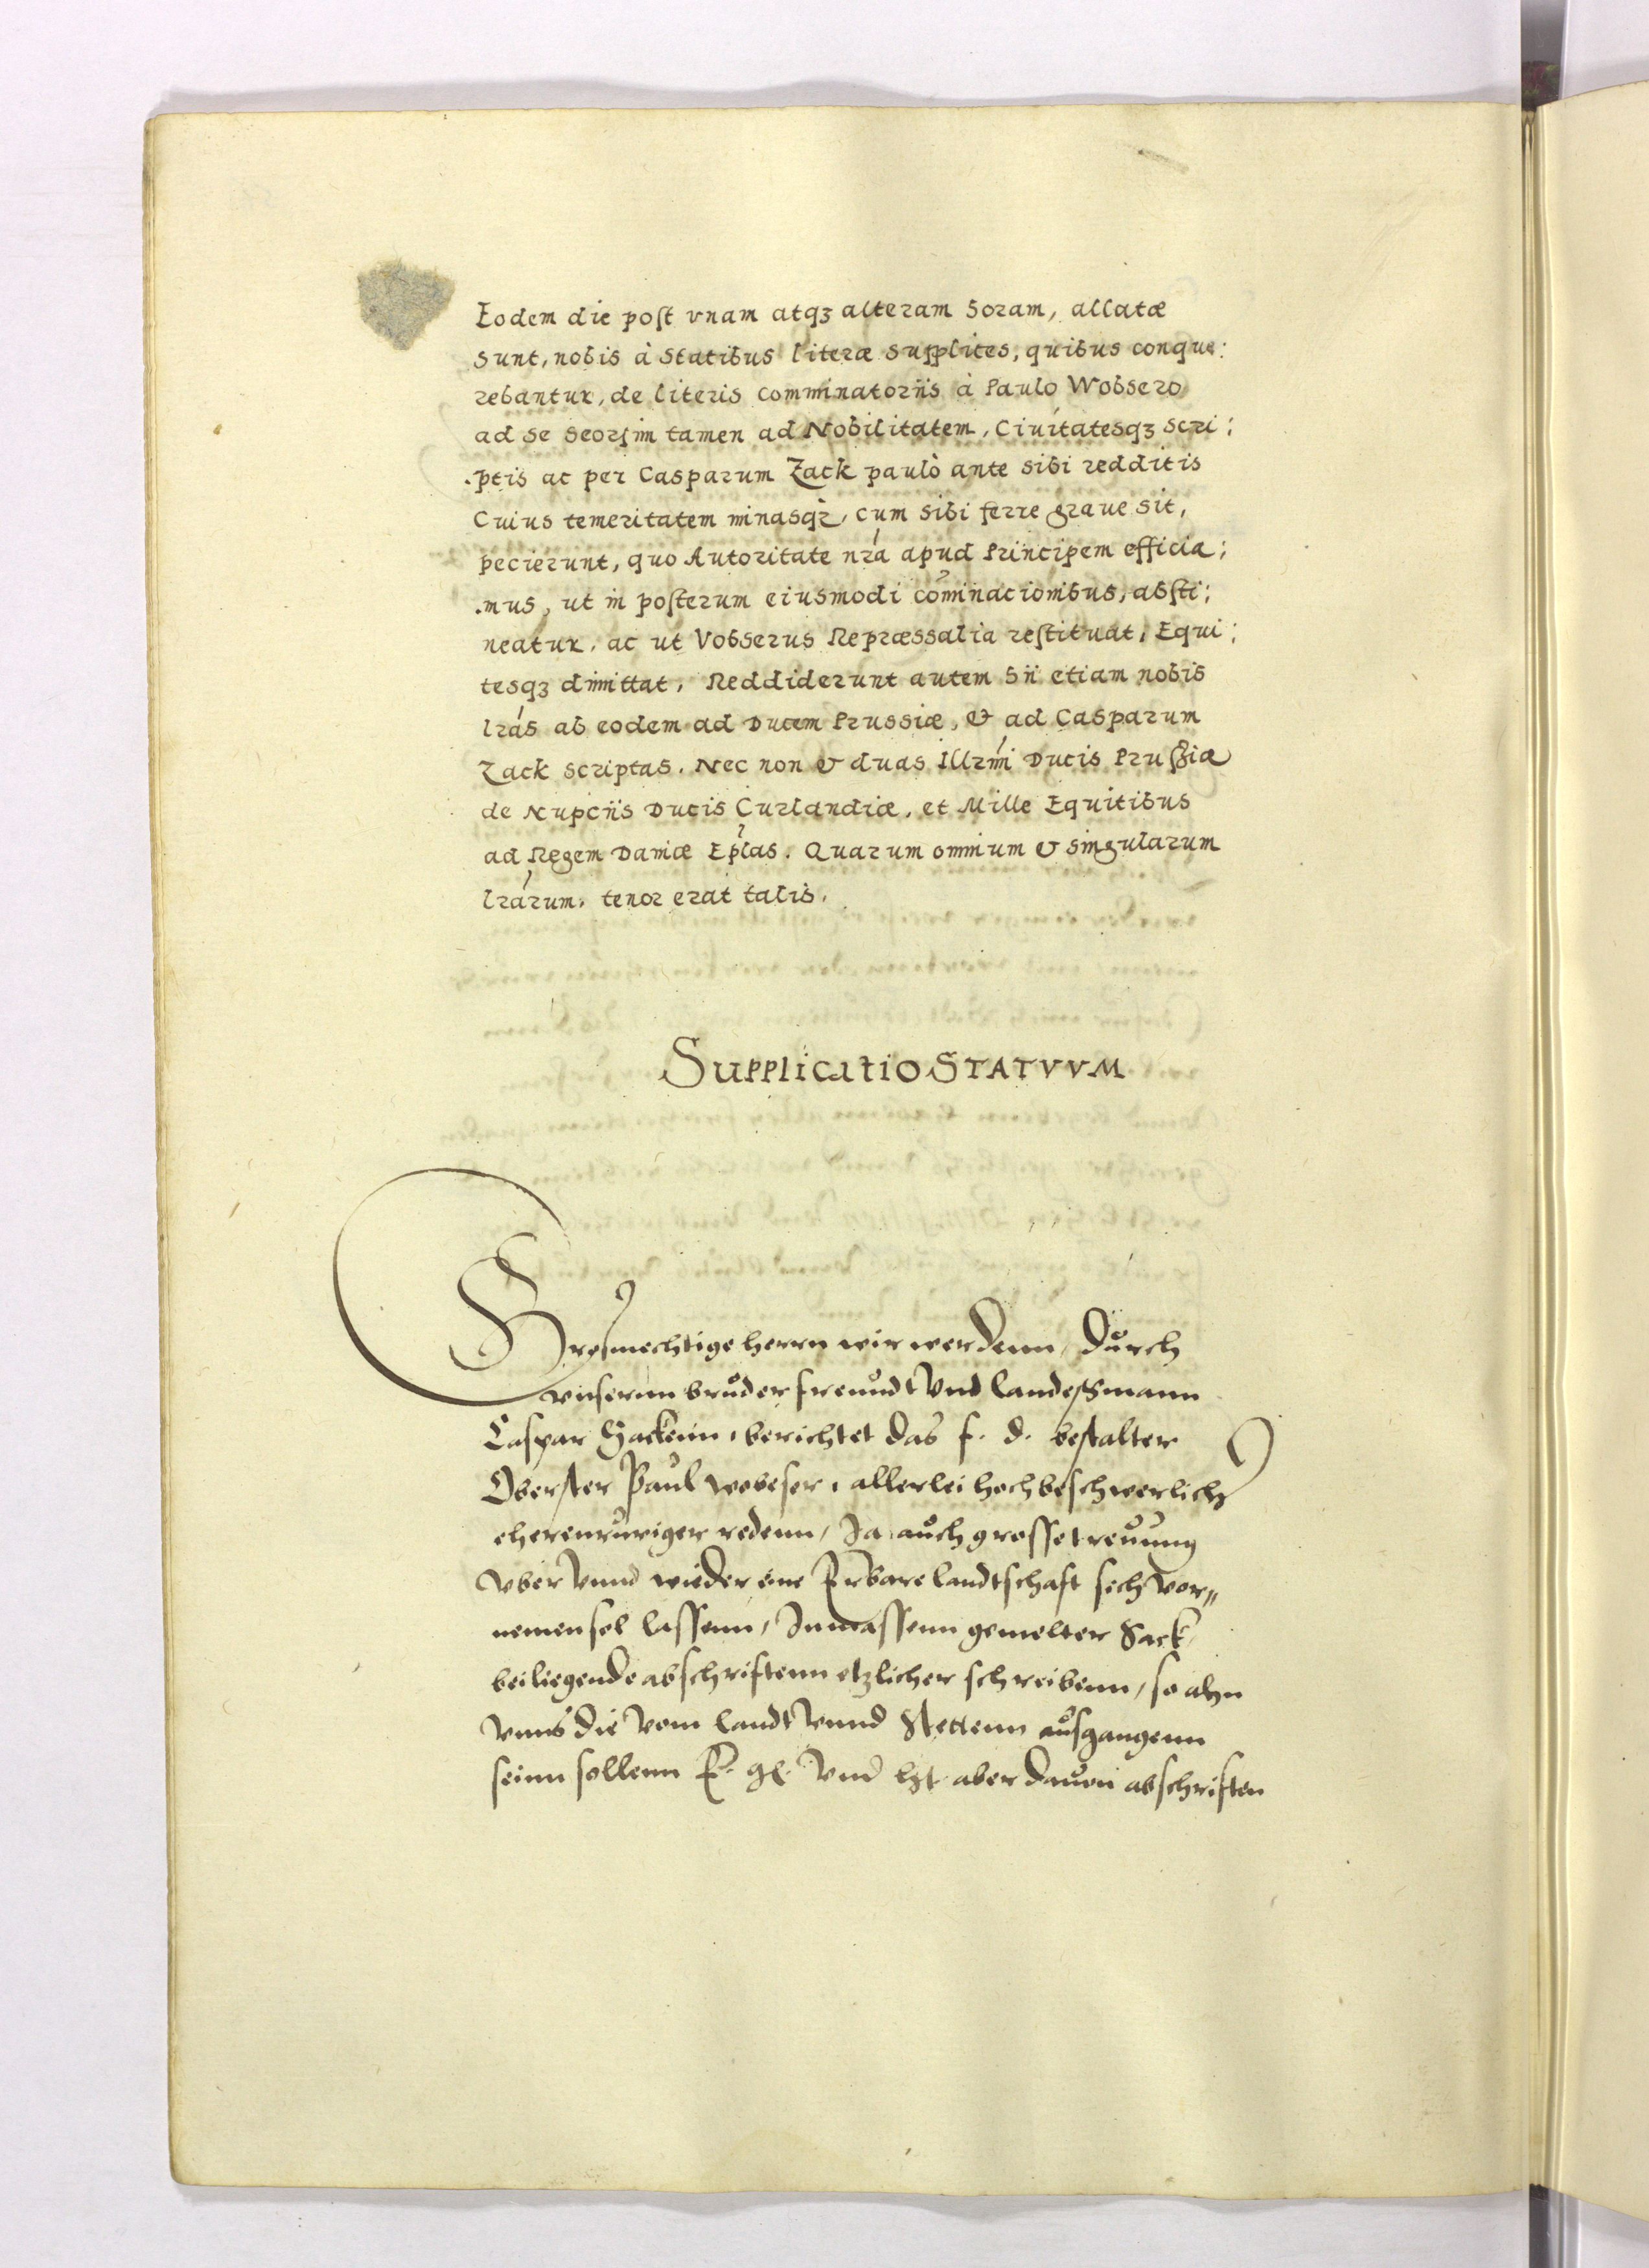 Eodem die post vnam atqꝫ alteram horam, allatæ
sunt, nobis à statibus literæ supplices, quibus conque:
rebantur, de literis comminatoriis à Paulo Wobsero
ad se seorsim tamen ad Nobilitatem, Ciuitatesqꝫ scri:
.ptis ac per Casparum Zack paulò ante sibi redditis
Cuius temeritatem minasqꝫ, cum sibi ferre graue sit,
pecierunt, quo Autoritate nrá apud Principem efficia:
.mus, ut in posterum eiusmodi cominacionibus, absti:
neatur, ac ut Vobserus Repræssalia restituat, Equi:
tesqꝫ dimittat, Reddiderunt autem hii etiam nobis
lrás ab eodem ad Ducem Prussiæ, & ad Casparum
Zack scriptas. Nec non & duas Illrmi Ducis Prussiæ
de Nupciis Ducis Curlandiæ, et Mille Equitibus
ad Regem Daniæ Eplas. Quarum omnium & singularum
lrárum, tenor erat talis.
Supplicatio STATVVM
Grosmechtige herrn wir werdenn, durch
vnsernn bruder freundt Vnd landeßmann
Caspar Sackenn, berichtet das f. d. bestalter
Oberster Paul wobeser, allerlei hochbeschwerliche
eherenruriger redenn, Ja auch grosse treuung
vber vnnd wieder eine Erbare landtschaft sich vor„
nemen sol lassenn, Inmassenn gemelter Sack,
beiliegende abschriftenn etzlicher schreibenn, so ahn
vnns die vom landt vnnd Stettenn ausgangenn
seinn sollenn E. gl. Vnd ht. aber dauon abschriften